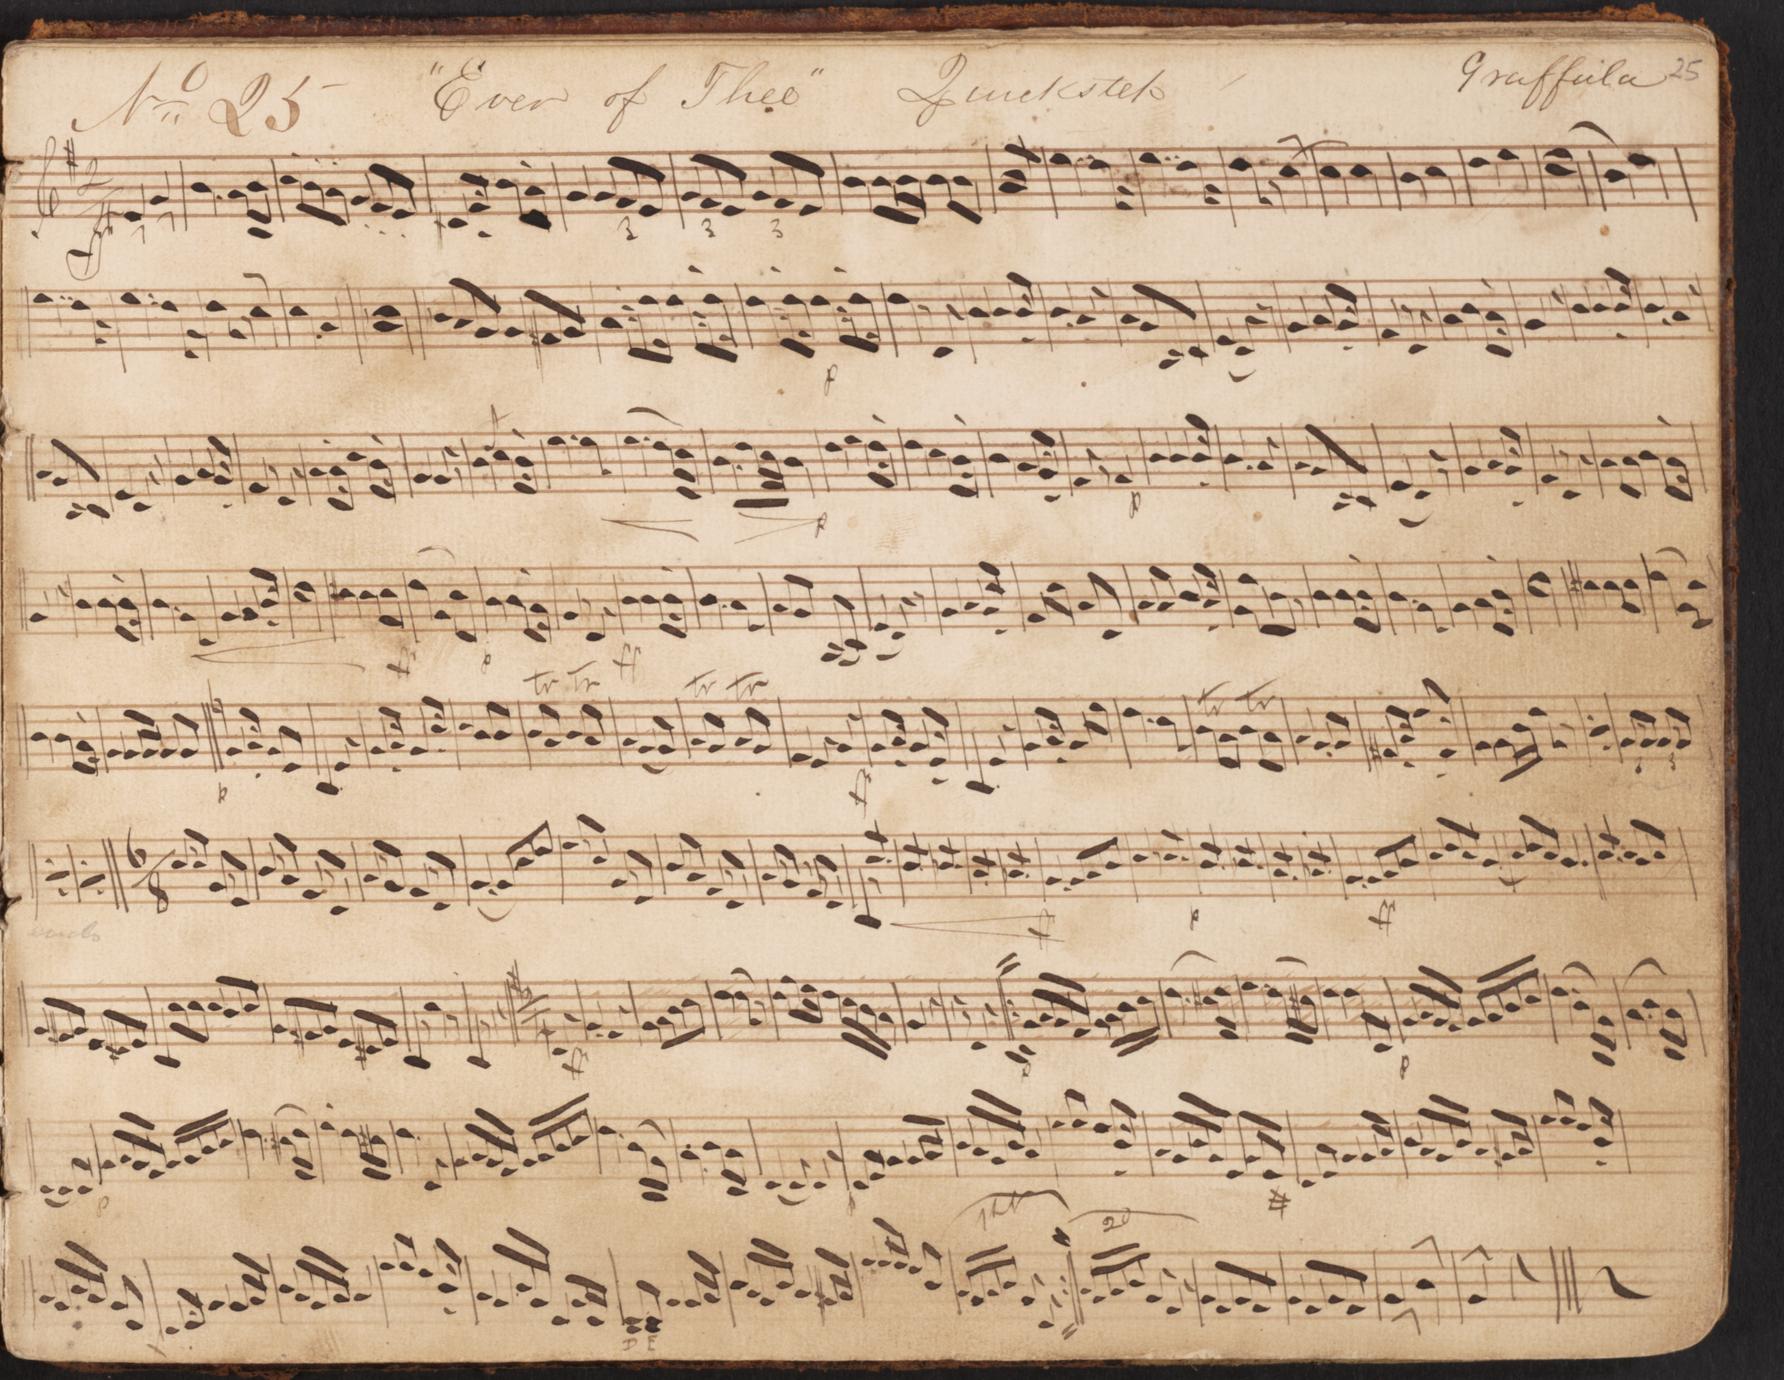 No 25 "Ever of Thee" Quickstep Graffula 25
2
ff
3 3 3
p
p p
ff p ff
tr tr tr tr tr tr
p ff
3 3
6/8
ff p ff
ff p
p
1st 2d
D E